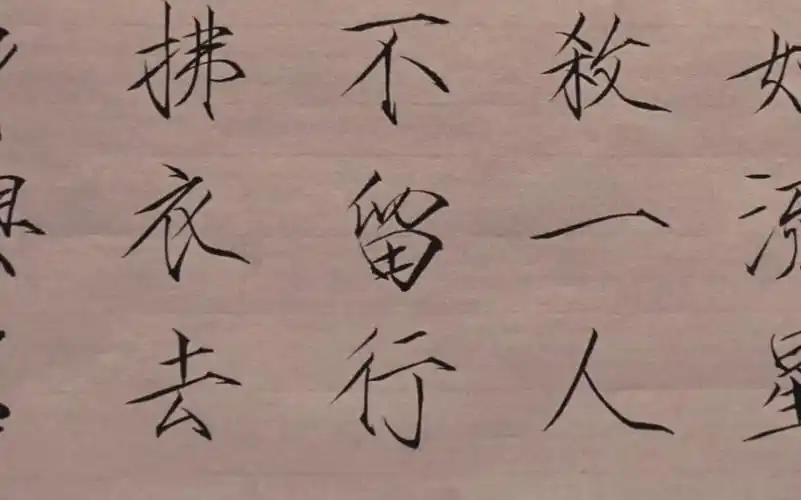 如流星
殺一人
不留行
拂衣去